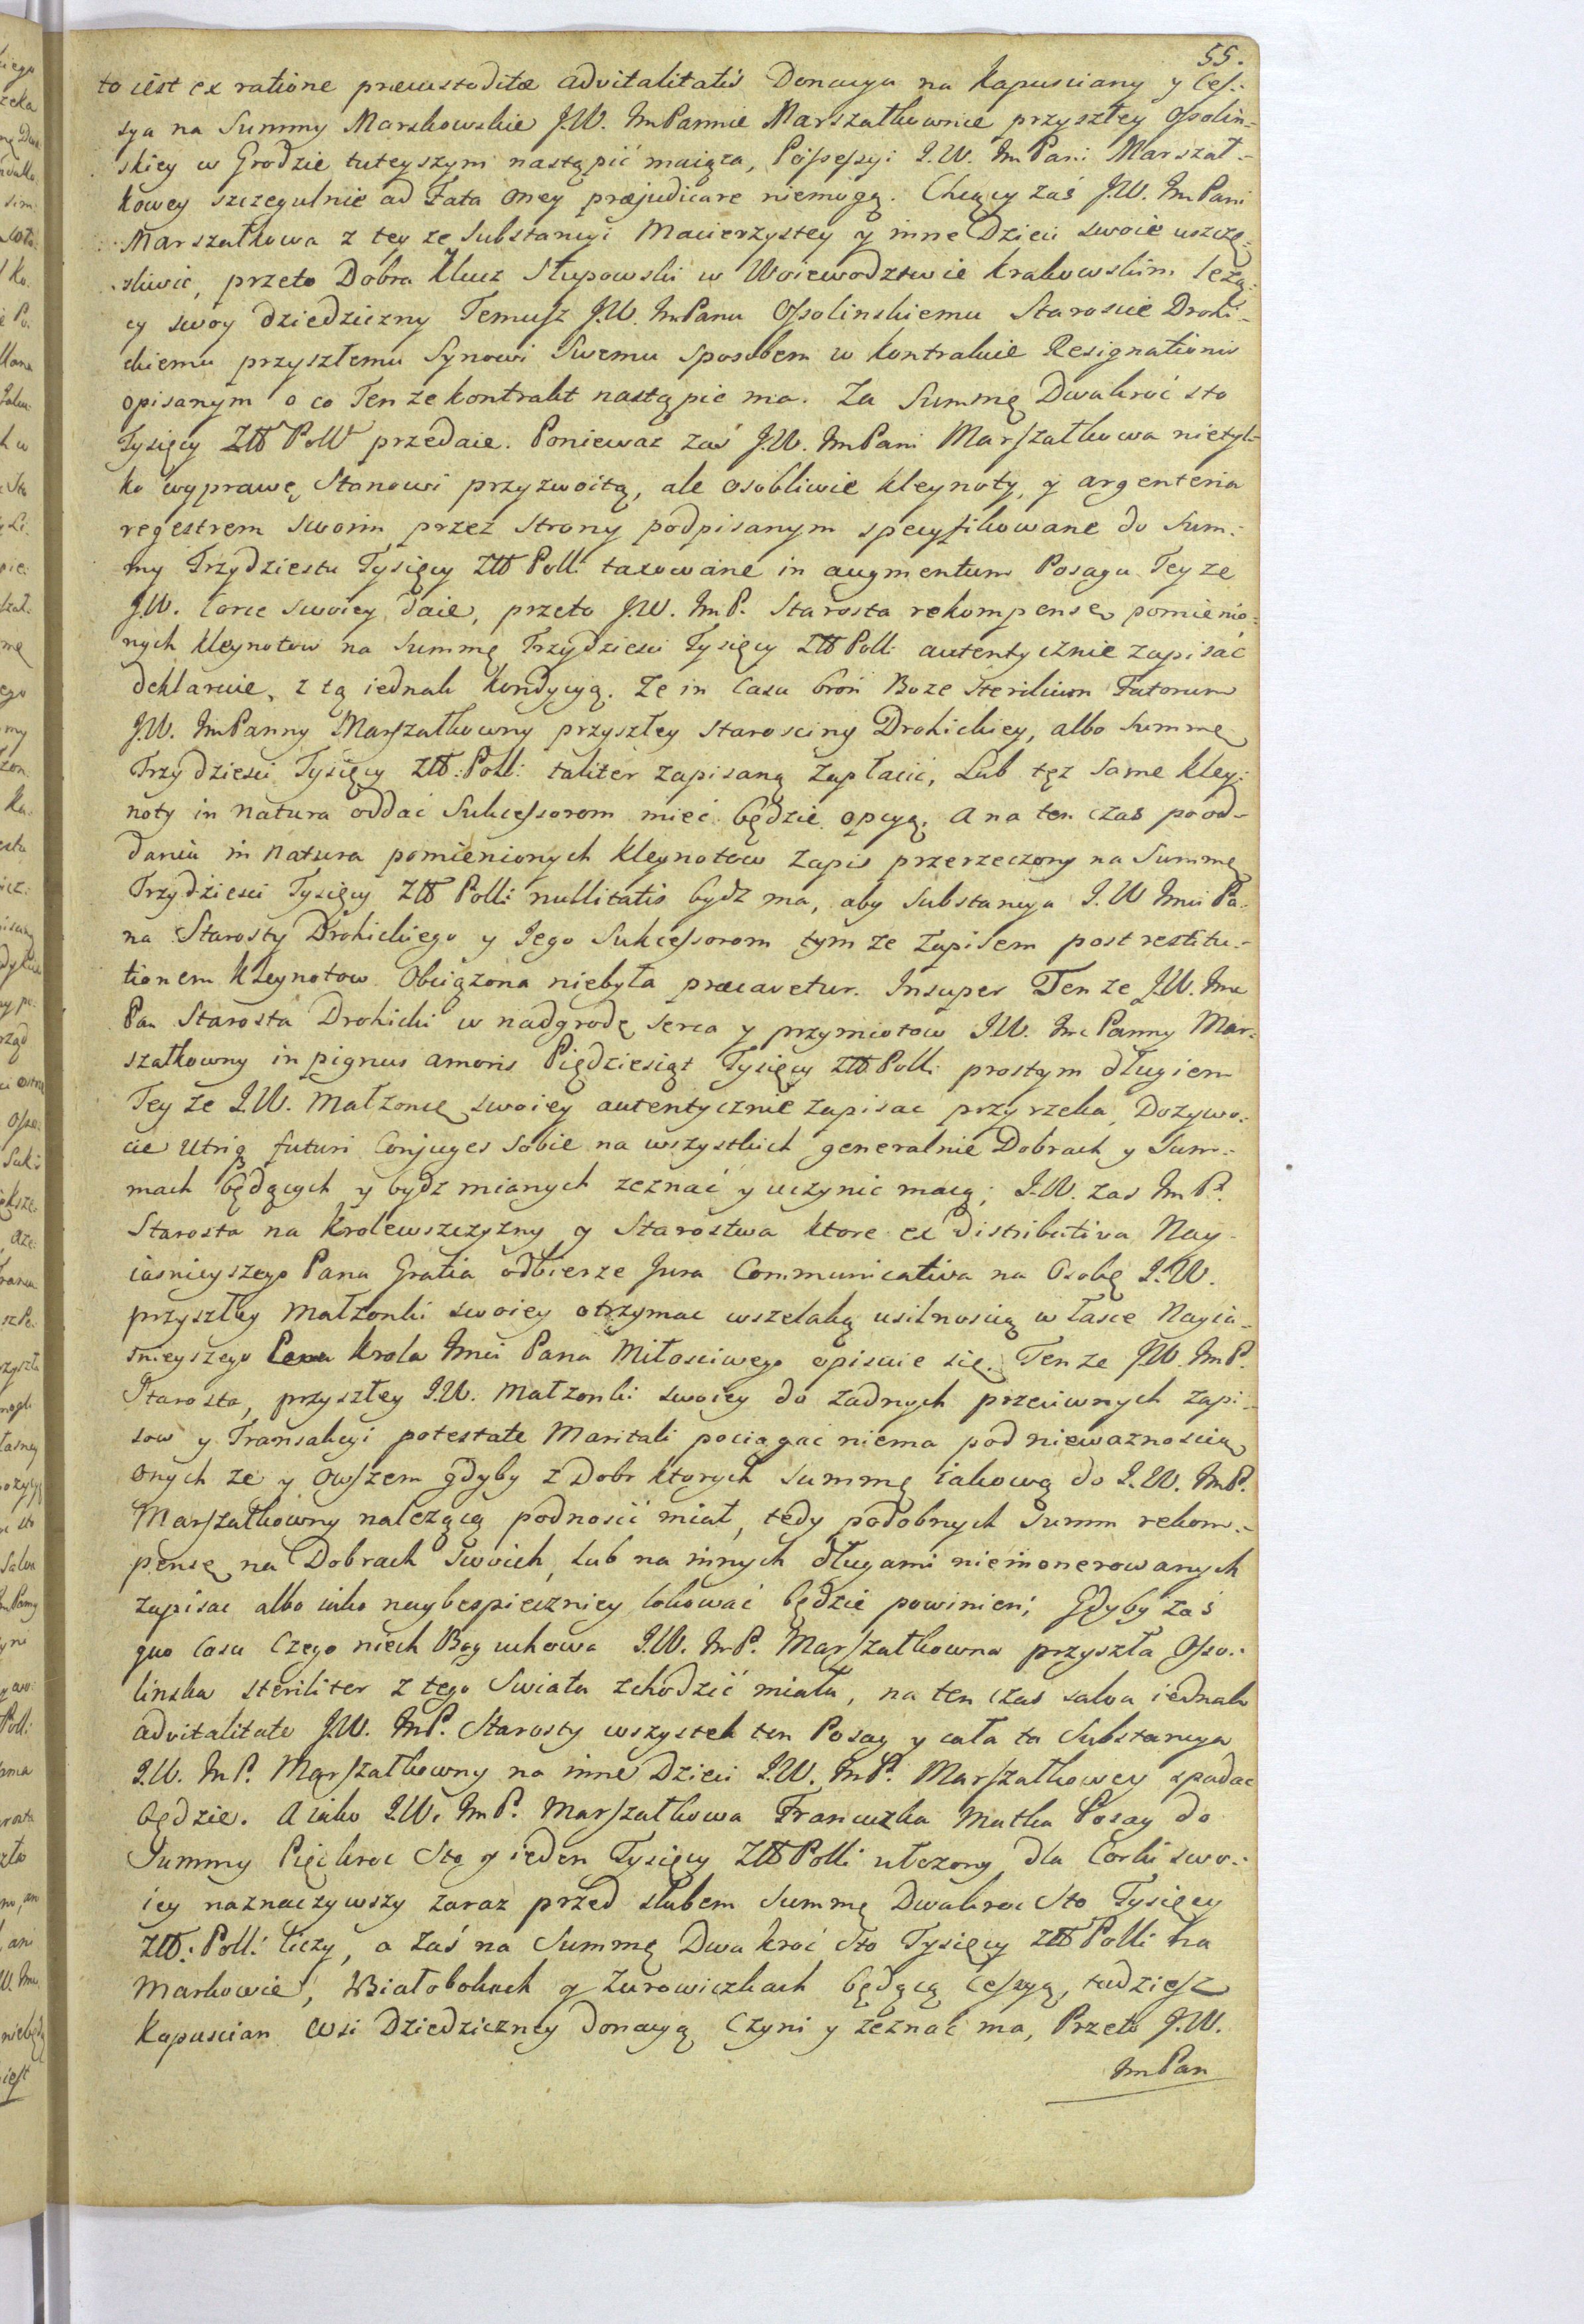 55.
to iest ex ratione præcustoditæ advitalitatis Donacya na Kapusciany y Ces-
sya na Summy Markowskie J.W. ImPannie Marszałkownie przyszłey Ossolin-
skiey w Grodzie tuteyszym nastąpić maiąca, Possessyi J.W. Im Pani Marszał-
kowey szczegulnie ad Fata oney præjudicare niemogą. Chcący zaś J.W. Im Pani
Marszałkowa z tey ze Substancyi Macierzystey y inne Dzieci swoie uszczę-
sliwić, przeto Dobra Klucz Słupowski w Woiewodztwie Krakowskim leżą-
cy swoy dziedziczny Temusz J.W. ImPanu Ossolinskiemu Staroscie Drohi-
ckiemu przyszłemu Synowi Swemu sposobem w kontrakcie Resignationis
opisanym o co Ten ze kontrakt nastąpic ma. Za Summę Dwakroć sto
Tysięcy Złł Poll: przedaie. Ponieważ zaś J.W. ImPani Marszałkowa nietyl-
ko wyprawę Stanowi przyzwoitą, ale osobliwie kleynoty, y argenteria
regestrem swoim przez Strony podpisanym specyfikowane do Sum-
my Trzydziestu Tysięcy Złł Poll: taxowane in augmentum Posagu Tey ze
J.W. Corce swoiey daie, przeto J.W. ImP. Starosta rekompensę pomienio-
nych kleynotow na Summę Trzydziesci Tysięcy Złł Poll: autentycznie zapisać
deklaruie, z tą iednak kondycyą. Ze in Casu broń Boze sterilium Fatorum
J.W. ImPanny Marszałkowny przyszłey Starosciny Drohickiey, albo Summę
Trzydziesci Tysięcy Złł: Poll: taliter zapisaną zapłacić, Lub tęż same kley-
noty in natura oddać Sukcessorom mieć będzie opcyą. A na ten czas po od-
daniu in natura pomienionych kleynotow zapis przerzeczony na Summę
Trzydziesci Tysięcy Złł Poll: nullitatis bydz ma, aby Substancya J.W Imci Pa-
na Starosty Drohickiego y Jego Sukcessorom tym ze zapisem post restitu-
tionem Kleynotow Obciążona niebyła præcavetur. Insuper Ten ze J.W. Imc
Pan Starosta Drohicki w nadgrodę serca y przymiotow J.W. Imc Panny Mar-
szałkowny in pignus amoris Pięćdziesiąt Tysięcy Złł Poll: prostym długiem
Tey ze J.W. Małzonce swoiey autentycznie zapisac przyrzeka, Dozywo-
cie utriq futuri Conjuges sobie na wszystkich generalnie Dobrach y Sum-
mach będących y bydz mianych zeznać y uczynic maią; J.W. zas ImP.
Starosta na Krolewszczyzny y Starostwa ktore ex distributiva Nay-
iasnieyszego Pana Gratia odbierze Jura Communicativa na Osobę J.W.
przyszłey Małzonki swoiey otrzymac wszelaką usilnoscią w łasce Nayia-
śnieyszego Krola Imci Pana Miłosciwego opisuie się. Ten ze J.W. ImP.
Starosta, przyszłey J.W. Małzonki swoiey do zadnych przeciwnych zapi-
sow y Transakcyi potestate Maritali pociągac niema pod niewaznoscią
onych ze y owszem gdyby z Dobr ktorych summę iakową do J.W. ImP.
Marszałkowny należącą podnosić miał, tedy podobnych Summ rekom-
pensę na Dobrach Swoich, lub na innych długami nieinonerowanych
zapisac albo iako naybespieczniey lokować będzie powinien; Gdyby zaś
quo Casu Czego niech Bog uchowa J.W. ImP. Marszałkowna przyszła Osso-
linska steriliter z tego Swiata zchodzić miała, na ten czas salva iednak
advitalitate J.W. ImP. Starosty wszystek ten Posag y cała ta Substancya
J.W. ImP. Marszałkowny na inne Dzieci J.W. ImP. Marszałkowey spadac
będzie. A iako J.W. ImP. Marszałkowa Francuzka Matka Posag do
Summy Pięckroc Sto y ieden Tysięcy Złł Poll: ułczony dla Corki swo-
iey naznaczywszy zaraz przed slubem Summę Dwakroc Sto Tysięcy
Złł: Poll: liczy, a zaś na Summę Dwa kroć Sto Tysięcy Złł Poll: na
Markowie, Białobokach y Zurowiczkach będącą Cessyą, tudziesz
Kapuscian wsi Dziedziczney donacyą Czyni y zeznac ma, Przeto J.W.
ImPan